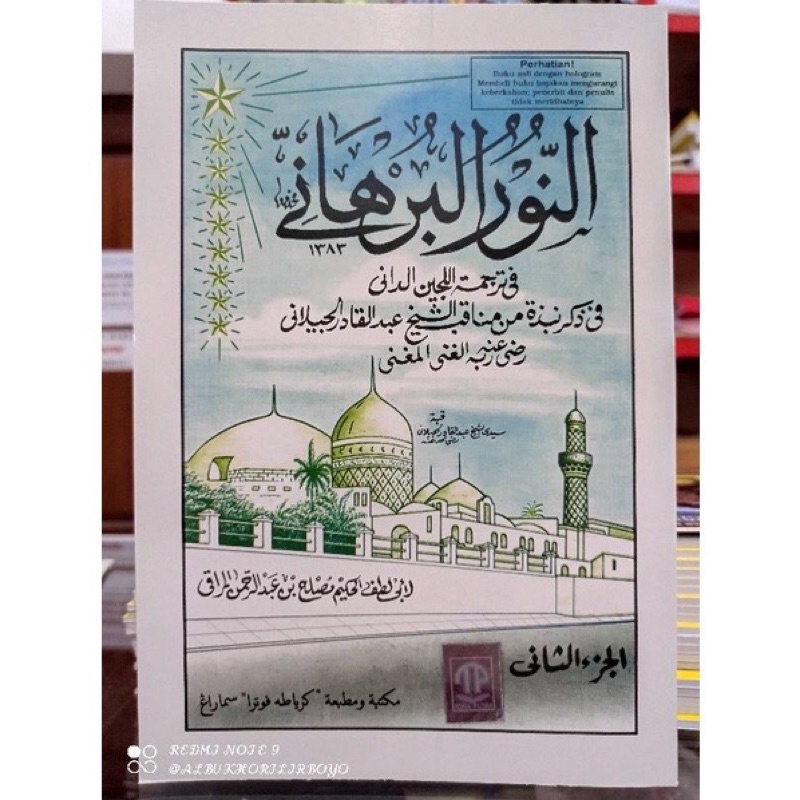 Perhatian!
Buku asli dengan hologram
Membeli buku bajakan mengurangi
keberkahan; penerbit dan penulis
tidak meridhainya
النُّوْرُ الْبُرْهَانِيّ
١٣٨٣
فى ترجمة اللجين الدانى
فى ذكر نبذة من مناقب الشيخ عبد القادر الجيلانى
رضى عنه ربه الغنى المغنى
قبة
سيدى الشيخ عبد القادر الجيلانى
رضى الله عنه
لأبى لطف الحكيم مصلح بن عبد الرحمن المراقى
الجزء الثانى
مكتبة ومطبعة "كرياطه فوترا" سماراغ
REDMI NOTE 9
@ALBUKHORILIRBOYO